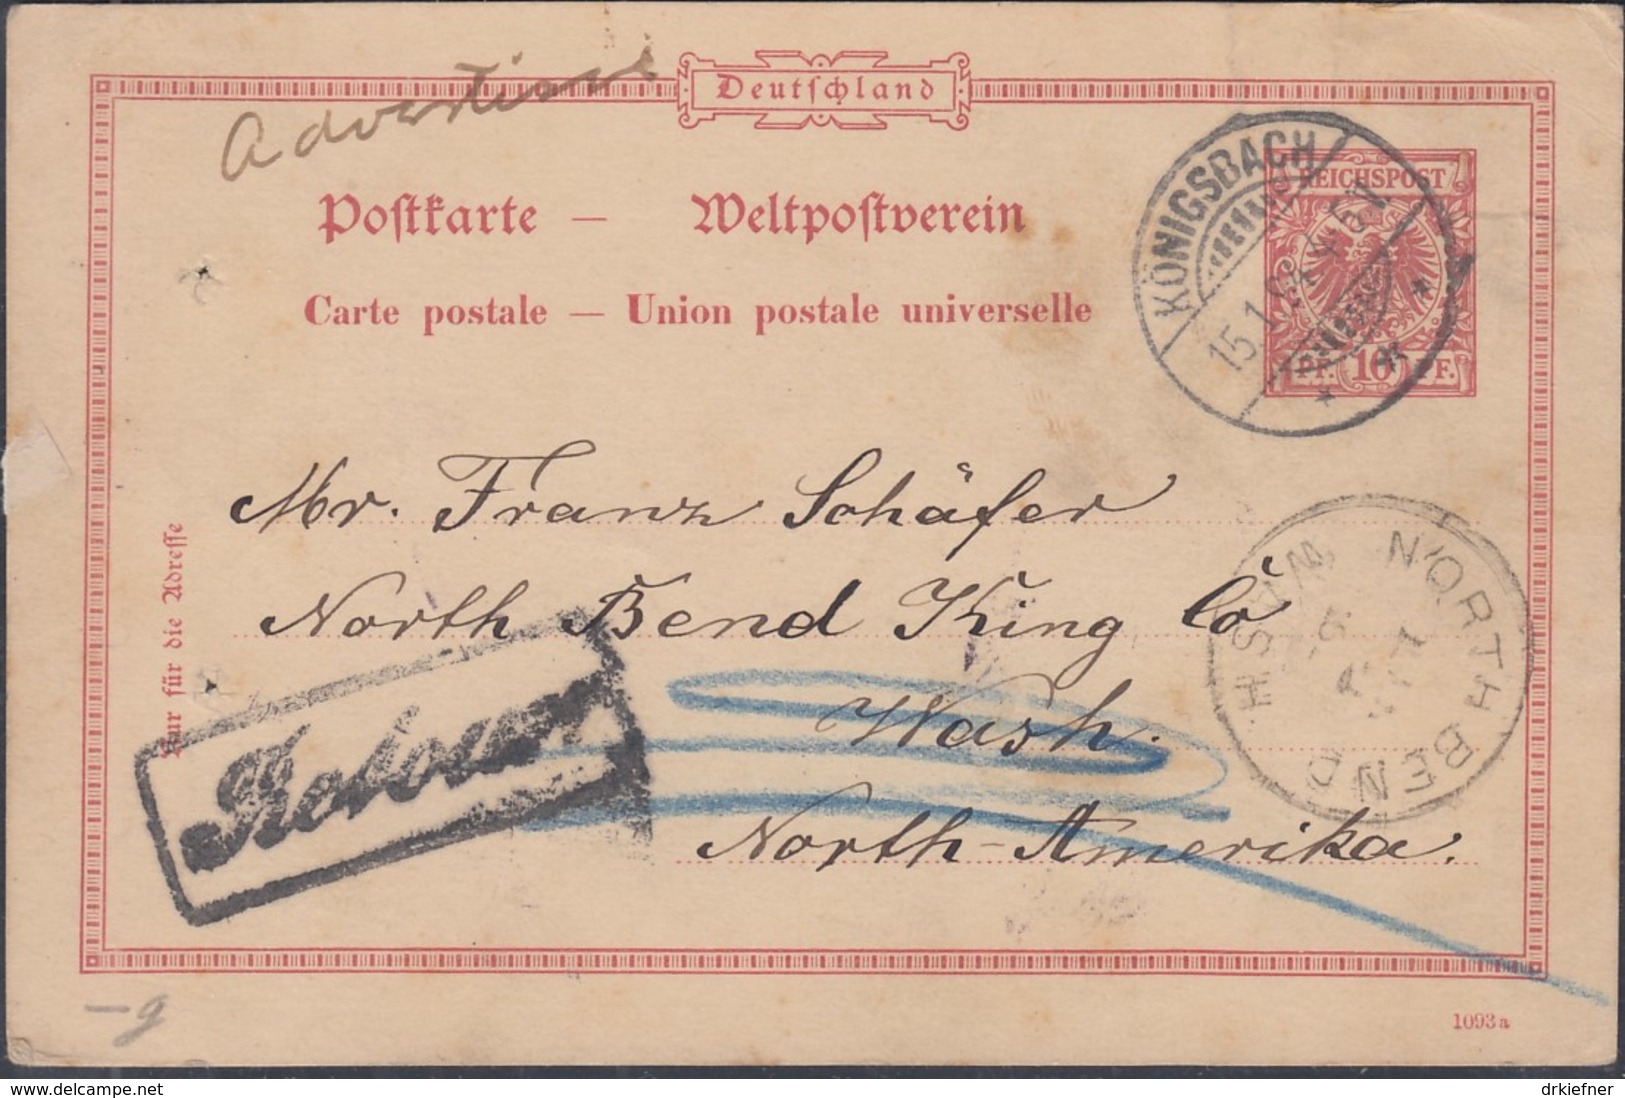 Advertised
Deutschland
Postkarte — Weltpostverein
Carte postale — Union postale universelle
REICHSPOST
PF. 10 PF.
KÖNIGSBACH
15.1.94
Mr. Franz Schäfer
North Bend King Co
Wash.
North-Amerika.
Nur für die Adresse
Retour
NORTH BEND
WASH
1093a
delcampe.net
drkiefner